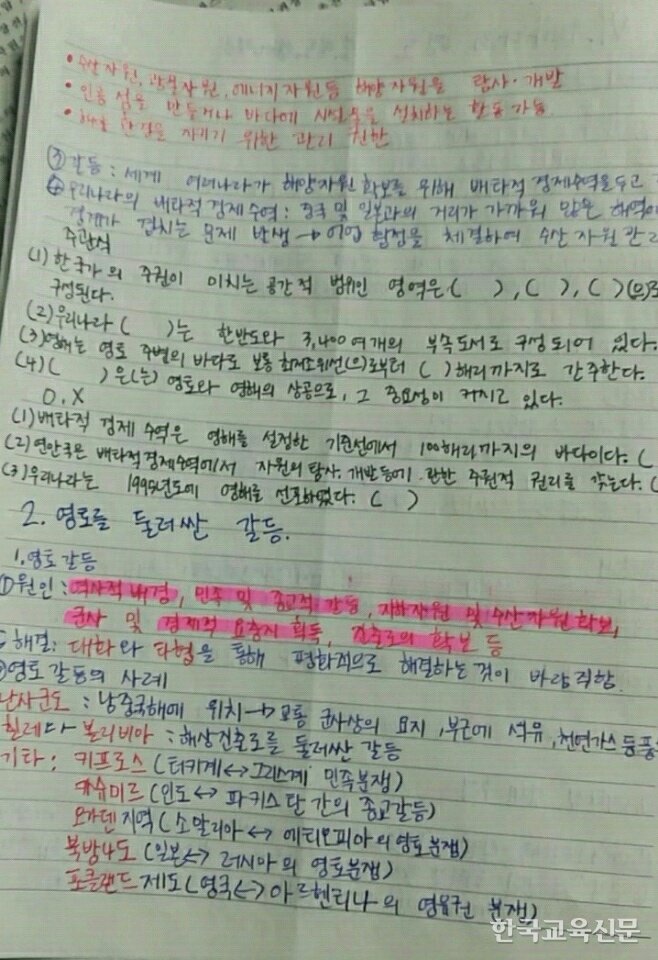 • 수산자원, 광물자원, 에너지자원등 해양자원을 탐사·개발
• 인공 섬을 만들거나 바다에 시설물을 설치하는 활동 가능
• 해양 환경을 지키기 위한 관리 권한
③ 갈등 : 세계 여러나라가 해양자원 확보를 위해 배타적 경제수역을 두고
④ 우리나라의 배타적 경제수역 : 중국 및 일본과의 거리가 가까워 많은 해역이
경계가 겹치는 문제 발생 → 어업 협정을 체결하여 수산 자원 관리
주관식
(1) 한 국가의 주권이 미치는 공간적 범위인 영역은 ( ), ( ), ( )(으)로
구성된다.
(2) 우리나라 ( )는 한반도와 3,400여개의 부속도서로 구성되어 있다.
(3) 영해는 영토 주변의 바다로 보통 최저조위선(으)로부터 ( )해리까지로 간주한다.
(4) ( )은(는) 영토와 영해의 상공으로, 그 중요성이 커지고 있다.
O, X
(1) 배타적 경제 수역은 영해를 설정한 기준선에서 100해리까지의 바다이다. (
(2) 연안국은 배타적경제수역에서 자원의 탐사, 개발 등에 관한 주권적 권리를 갖는다. (
(3) 우리나라는 년도에 영해를 선포하였다. ( )
2. 영토를 둘러싼 갈등.
1. 영토 갈등
① 원인 : 역사적 배경, 민족 및 종교적 갈등, 지하자원 및 수산자원 확보,
군사 및 경제적 요충지 획득, 진출로의 확보 등
해결 : 대화와 타협을 통해 평화적으로 해결하는 것이 바람직함.
영토 갈등의 사례
난사군도 : 남중국해에 위치 → 교통 군사상의 요지, 부근에 석유, 천연가스 등 풍
칠레와 볼리비아 : 해상진출로를 둘러싼 갈등
기타 : 키프로스 (터키계 ↔ 그리스계 민족분쟁)
카슈미르 (인도 ↔ 파키스탄 간의 종교갈등)
오가덴 지역 (소말리아 ↔ 에티오피아의 영토분쟁)
북방4도 (일본 ↔ 러시아의 영토분쟁)
포클랜드 제도 (영국 ↔ 아르헨티나의 영유권 분쟁)
한국교육신문